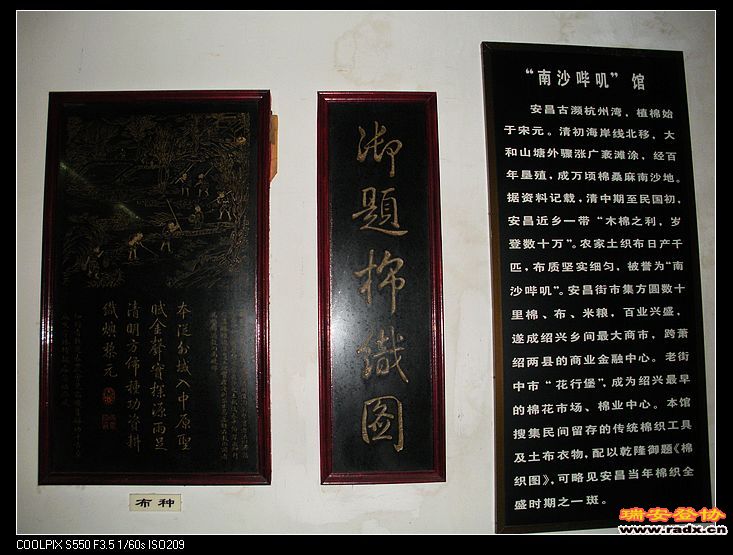 本從外域入中原聖
賦金聲實探源雨足
清明方佈種功資耕
織燠黎元
布种
御題棉織图
“南沙哔叽”馆
安昌古濒杭州湾，植棉始
于宋元。清初海岸线北移，大
和山塘外骤涨广袤滩涂，经百
年垦殖，成万顷棉桑麻南沙地。
据资料记载，清中期至民国初，
安昌近乡一带“木棉之利，岁
登数十万”。农家土织布日产千
匹，布质坚实细匀，被誉为“南
沙哔叽”。安昌街市集方圆数十
里棉、布、米粮，百业兴盛，
遂成绍兴乡间最大商市，跨萧
绍两县的商业金融中心。老街
中市“花行堡”，成为绍兴最早
的棉花市场、棉业中心。本馆
搜集民间留存的传统棉织工具
及土布衣物，配以乾隆御题《棉
织图》，可略见安昌当年棉织全
盛时期之一斑。
瑞安登协
www.radx.cn
COOLPIX S550 F3.5 1/60s ISO209